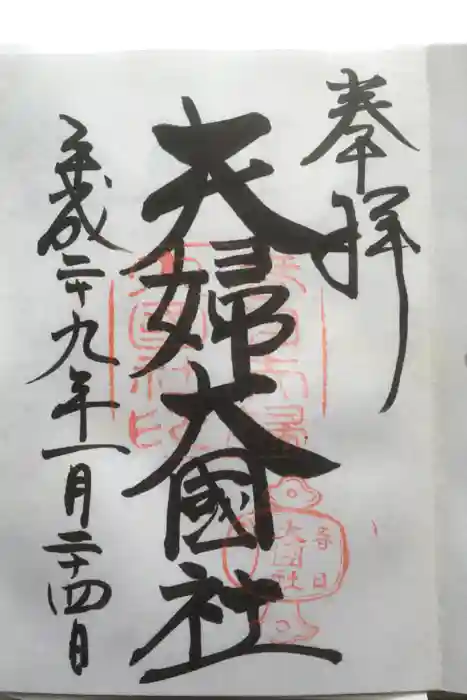 奉拝
夫婦大國社
平成二十九年一月二十四日
春日
大國社